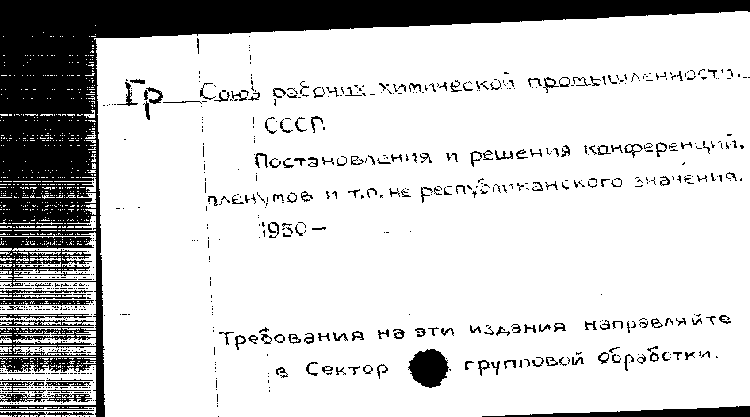 Гр Союз рабочих химической промышленности.
СССР.
Постановления и решения конференций,
пленумов и т.п. не республиканского значения.
1930 —
Требования на эти издания направляйте
в Сектор групповой обработки.